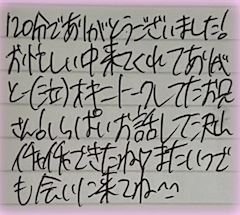 120分でありがとうございました!
お忙しい中来てくれてありが
と〜(泣)オキニトークしてたお兄
さん。いっぱいお話して沢山
イチャイチャできたね♡またいつで
も会いに来てね〜